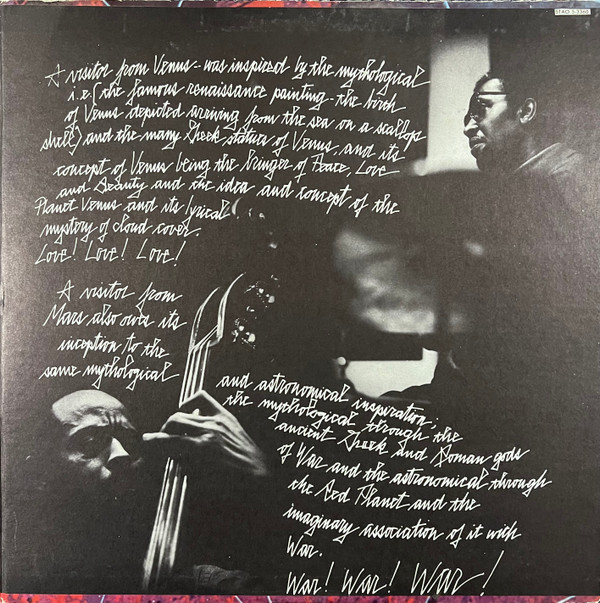 STAO 5-3360
A visitor from Venus--was inspired by the mythological
i.e. (the famous renaissance painting - the birth
of Venus depicted arriving from the sea on a scallop
shell) and the many Greek statues of Venus, and its
concept of Venus being the bringer of Peace, Love
and Beauty and the idea and concept of the
Planet Venus and its lyrical
mystery of cloud cover.
Love! Love! Love!
A visitor from
Mars also owes its
inception to the
same mythological
and astronomical inspiration:
the mythological through the
ancient Greek and Roman gods
of War and the astronomical through
the Red Planet and the
imaginary association of it with
War.
War! War! War!